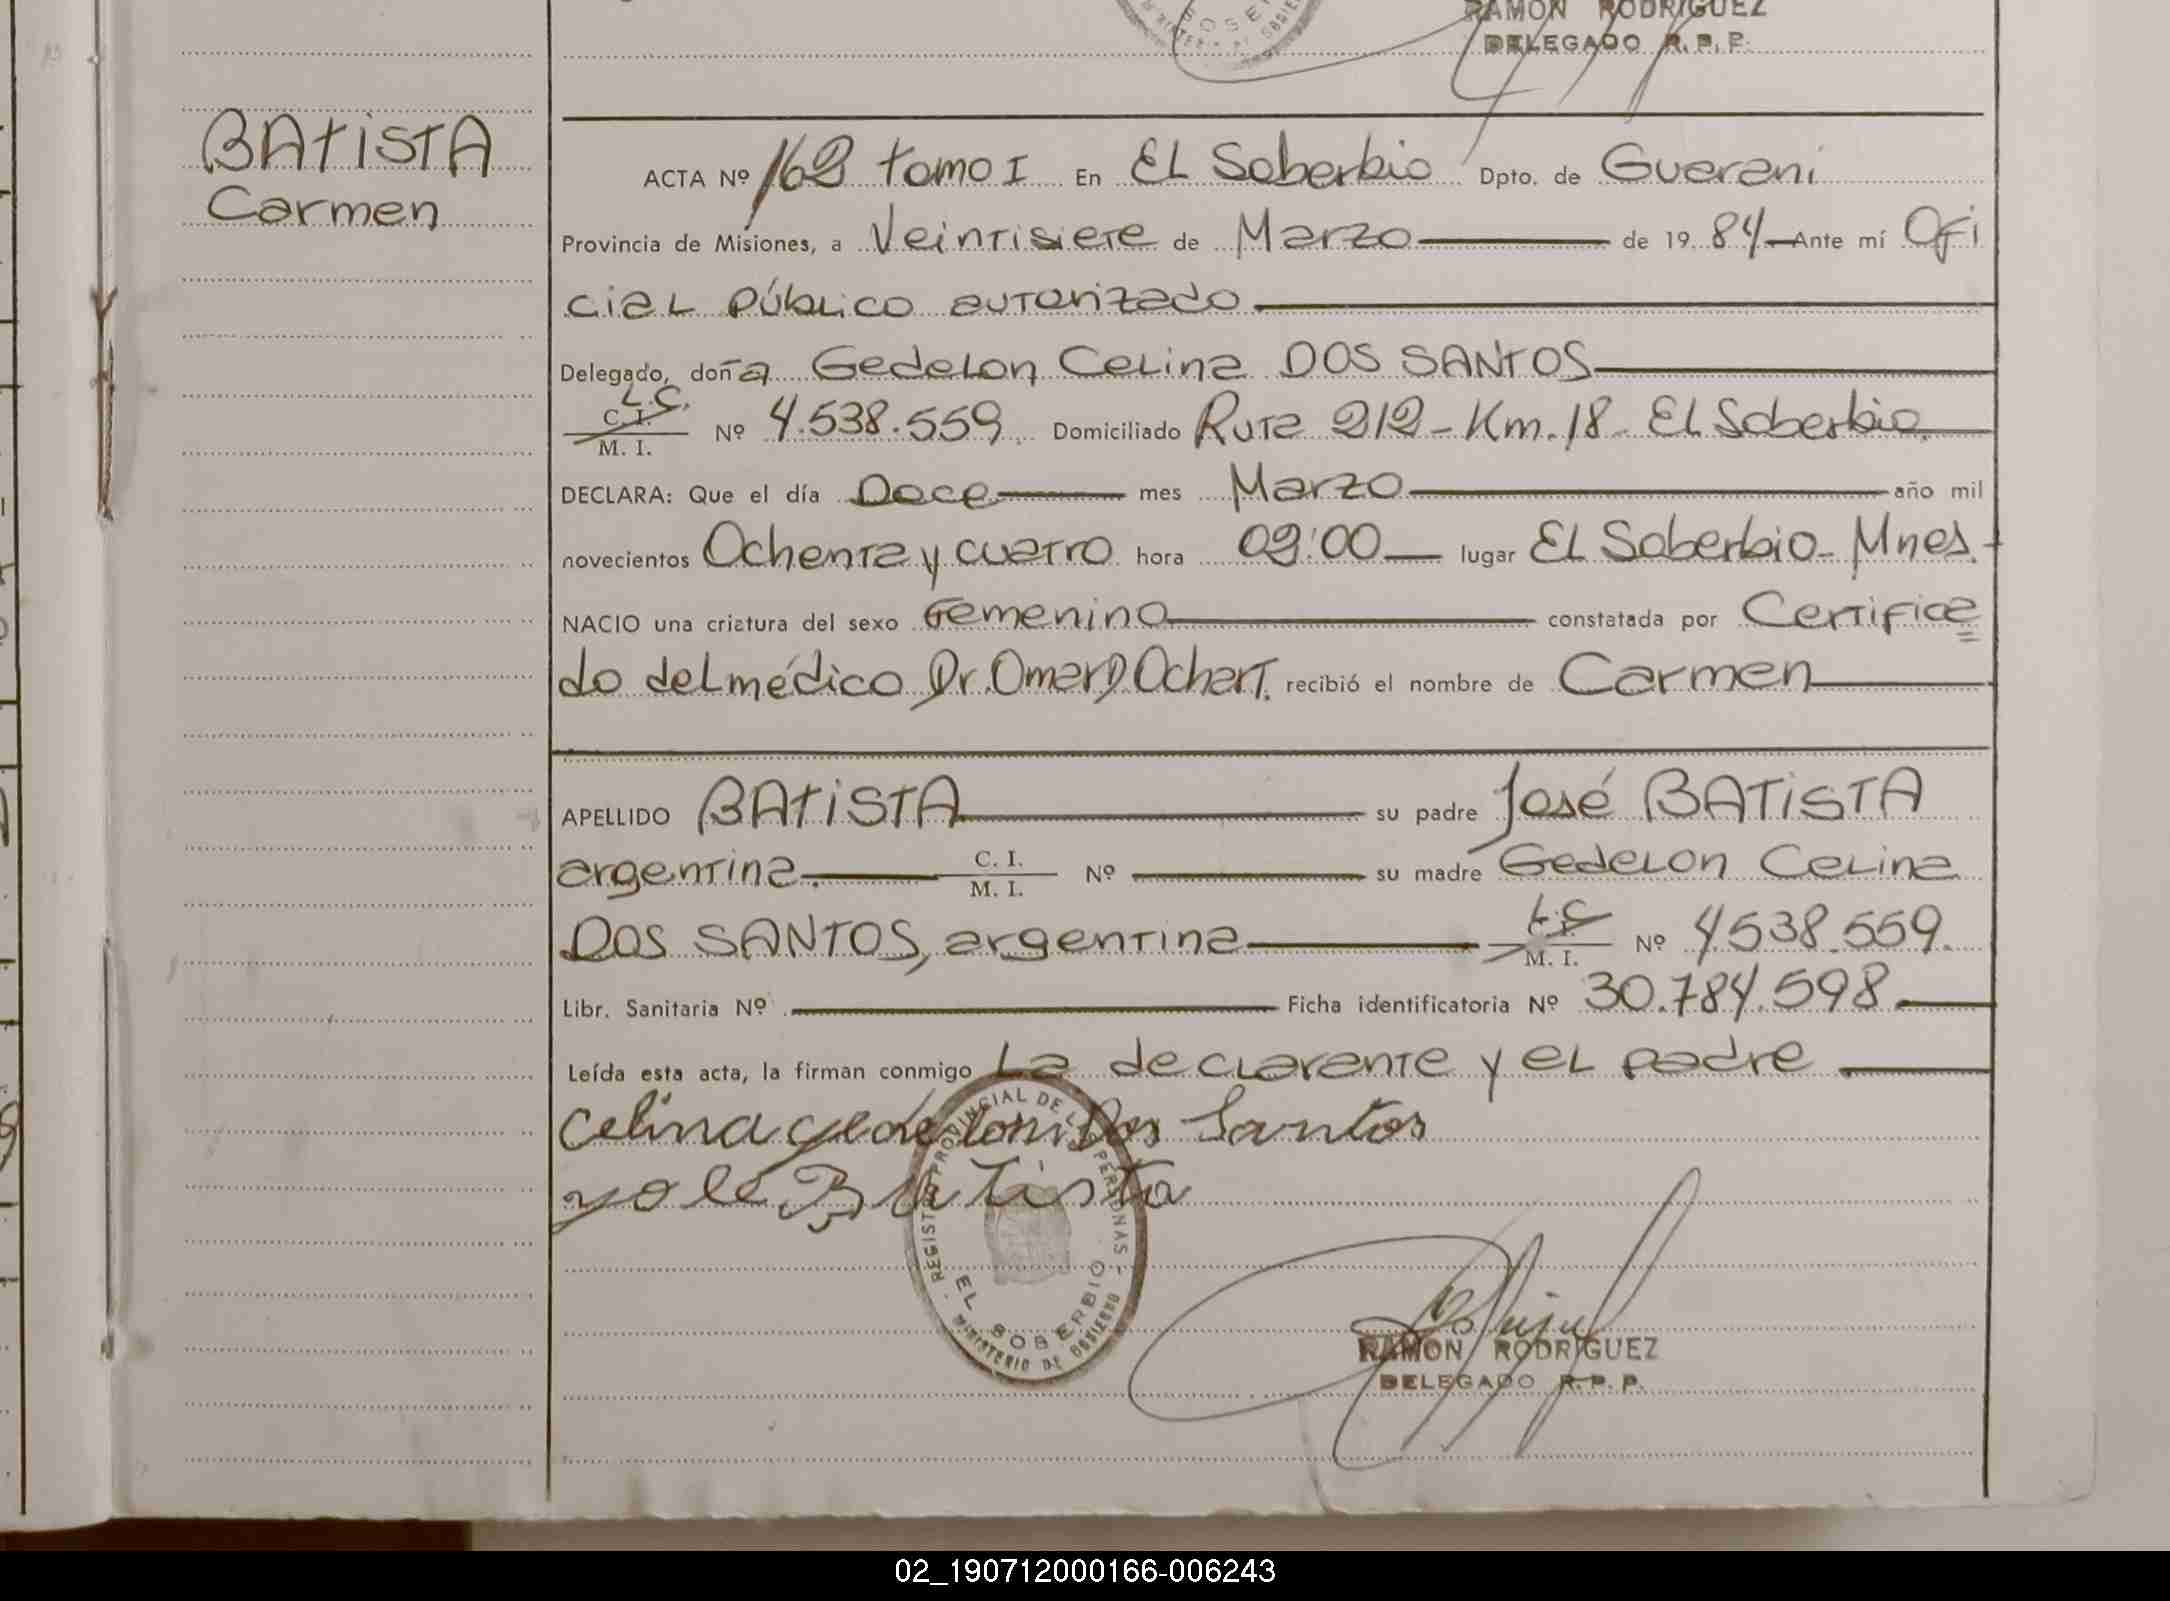 RAMON RODRIGUEZ
DELEGADO R. P. P.
BATISTA
Carmen
ACTA Nº 162 tomo I En EL Soberbio Dpto. de Guarani
Provincia de Misiones, a Veintisiete de Marzo de 19 84 Ante mí Ofi
cial Público autorizado
Delegado, doña Gedelon Celina DOS SANTOS
L.C.
C. I.
M. I. Nº 4.538.559 Domiciliado Ruta 212 - Km. 18 - El Soberbio
DECLARA: Que el día Doce mes Marzo año mil
novecientos Ochenta y cuatro hora 09:00 lugar El Soberbio - Mnes.
NACIO una criatura del sexo Femenino constatada por Certifica
do del médico Dr. Omar D. Ochert. recibió el nombre de Carmen
APELLIDO BATISTA su padre José BATISTA
argentina. C. I. M. I. Nº su madre Gedelon Celina
DOS SANTOS, argentina L.C. M. I. Nº 4538.559.
Libr. Sanitaria Nº Ficha identificatoria Nº 30.784.598
Leída esta acta, la firman conmigo La declarante y el padre
Celina gedeloni Dos Santos
Batista
REGISTRO PROVINCIAL DE LAS PERSONAS
EL SOBERBIO
MINISTERIO DE GOBIERNO
RAMON RODRIGUEZ
DELEGADO R. P. P.
02_190712000166-006243